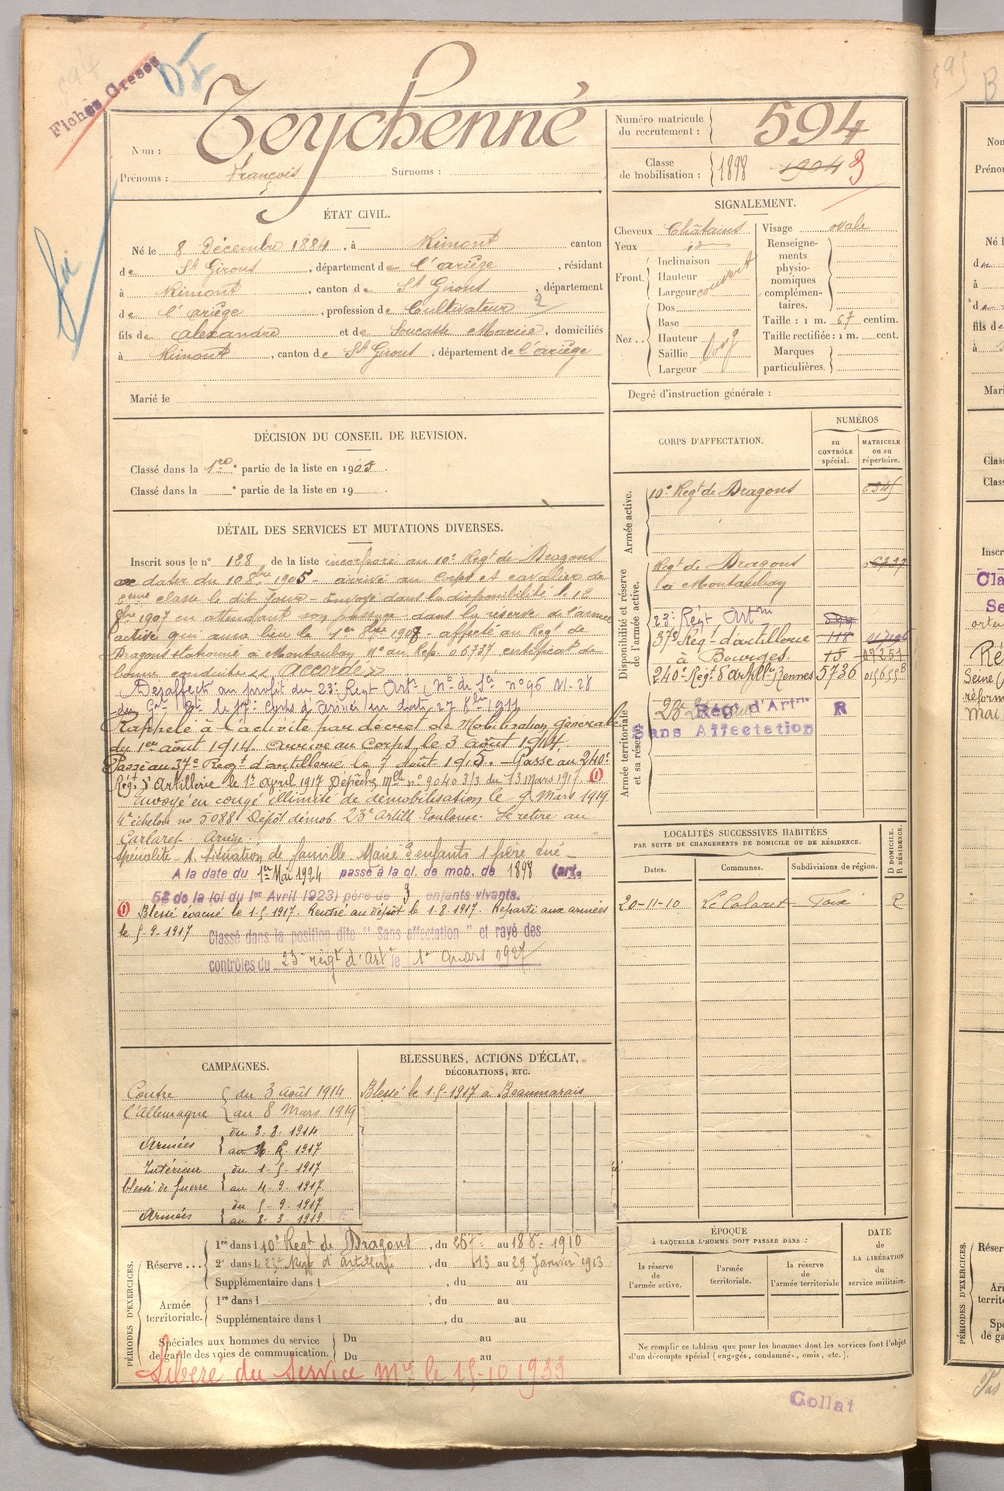 594
Fiches Creses
Nom : Teychenné
Prénoms : François Surnoms :
Numéro matricule du recrutement : 594
Classe de mobilisation : 1898 1904 3
ÉTAT CIVIL.
Né le 8 Décembre 1884, à Rimont canton
de St Girons, département de l'ariège, résidant
à Rimont, canton de St Girons, département
de l'ariège, profession de Cultivateur 2
fils de alexandre et de Soucasse Maria, domiciliés
à Rimont, canton de St Girons, département de l'ariège
Marié le
SIGNALEMENT.
Cheveux Châtains
Yeux id
Front. Inclinaison
Hauteur
Largeur couvert
Nez. Dos
Base
Hauteur
Saillie fort
Largeur
Visage ovale
Renseignements physionomiques complémentaires.
Taille : 1 m. 67 centim.
Taille rectifiée : 1 m. cent.
Marques particulières.
Degré d'instruction générale :
DÉCISION DU CONSEIL DE REVISION.
Classé dans la 1re partie de la liste en 1905.
Classé dans la e partie de la liste en 19 .
DÉTAIL DES SERVICES ET MUTATIONS DIVERSES.
Inscrit sous le n° 128 de la liste incorporé au 10e Regt de Dragons
à dater du 10 8bre 1905 - arrivé au corps et cavalier de
2eme classe le dit jour - Envoyé dans la disponibilité le 12
7bre 1907 en attendant son passage dans la réserve de l'armée
active qui aura lieu le 1er 8bre 1908 - affecté au Regt de
Dragons stationné à Montauban n° au Rép. 06737 certificat de
bonne conduite « accordé »
Desaffecté au profit du 23e Regt Artie N° de Sn n°96 M-28
du Gl Ct le 17e Corps d'armée en date 27 8bre 1911
Rappelé à l'activité par décret de Mobilisation générale
du 1er août 1914. arrivé au Corps le 3 août 1914.
Passé au 37e Regt d'artillerie le 7 Août 1915. Passé au 240e
Regt d'Artillerie le 1er avril 1917 Dépêche Mlle n° 9040 3/3 du 13 Mars 1917. (1)
Envoyé en congé illimité de démobilisation le 9 Mars 1919
4e échelon no 5088 Dépôt démob. 23e Artill Toulouse. Se retire au
Carlaret Ariège.
Spécialité - 1. Situation de famille Marié 3 enfants 1 frère tué
A la date du 1er Mai 1924 passé à la cl. de mob. de 1898 (art.
58 de la loi du 1er Avril 1923) père de 3 enfants vivants.
(1) Blessé évacué le 1.5.1917. Rentré au dépôt le 1.8.1917. Reparti aux armées
le 5.9.1917
Classé dans la position dite " Sans affectation " et rayé des
contrôles du 23e régt d'Artie le 1er Mars 1927
CORPS D'AFFECTATION.
NUMÉROS
au CONTRÔLE spécial.
MATRICULE ou au répertoire.
Armée active.
10e Regt de Dragons
Disponibilité et réserve de l'armée active.
Regt de Dragons
à Montauban 06737
23e Régt Artie
37e Régt d'artillerie 118
à Bourges. 15
240e Regt d'Artillie Rennes 5736
Armée territoriale et sa réserve.
23e Régt d'Artie R
Sans Affectation
LOCALITÉS SUCCESSIVES HABITÉES
PAR SUITE DE CHANGEMENTS DE DOMICILE OU DE RÉSIDENCE.
Dates. Communes. Subdivisions de région.
D DOMICILE. R RÉSIDENCE.
20-11-10 Le Calaret Foix R
CAMPAGNES.
Contre du 3 août 1914
l'Allemagne au 8 Mars 1919
Armées du 3.8.1914
au 1917
Intérieur du 1.5.1917
blessé de Guerre au 4.9.1917
Armées du 5.9.1917
au 8.3.1919
BLESSURES, ACTIONS D'ÉCLAT,
DÉCORATIONS, ETC.
Blessé le 1.5.1917 à Beaumarais
PÉRIODES D'EXERCICES.
Réserve... 1re dans l 10e Regt de Dragons, du 26 7bre au 18 8bre 1910
2e dans le 23e Régt d'artillerie du 13 au 29 Janvier 1913
Supplémentaire dans l , du au
Armée territoriale. 1re dans l , du au
Supplémentaire dans l , du au
Spéciales aux hommes du service de garde des voies de communication. Du au
Du au
Libéré du Service Mre le 15-10 1933
ÉPOQUE
À LAQUELLE L'HOMME DOIT PASSER DANS :
la réserve de l'armée active.
l'armée territoriale.
la réserve de l'armée territoriale
DATE de LA LIBÉRATION du service militaire.
Ne remplir ce tableau que pour les hommes dont les services font l'objet
d'un décompte spécial (engagés, condamnés, omis, etc.).
Collat
595